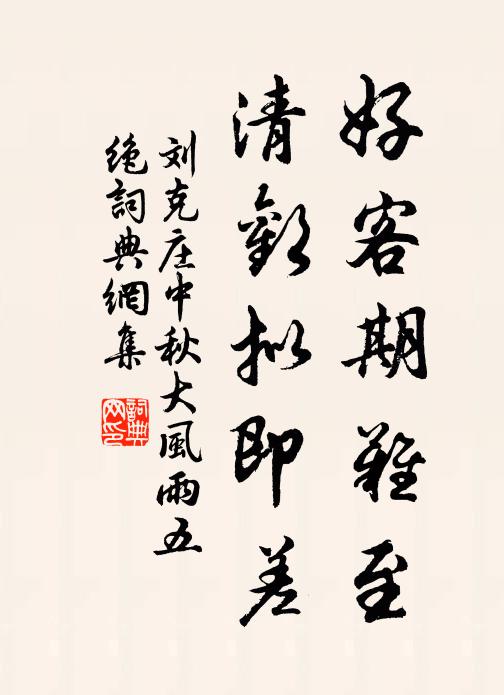 好客期難至
清歡拟即差
刘克庄中秋大風雨五
绝詞典網集
詞典网印